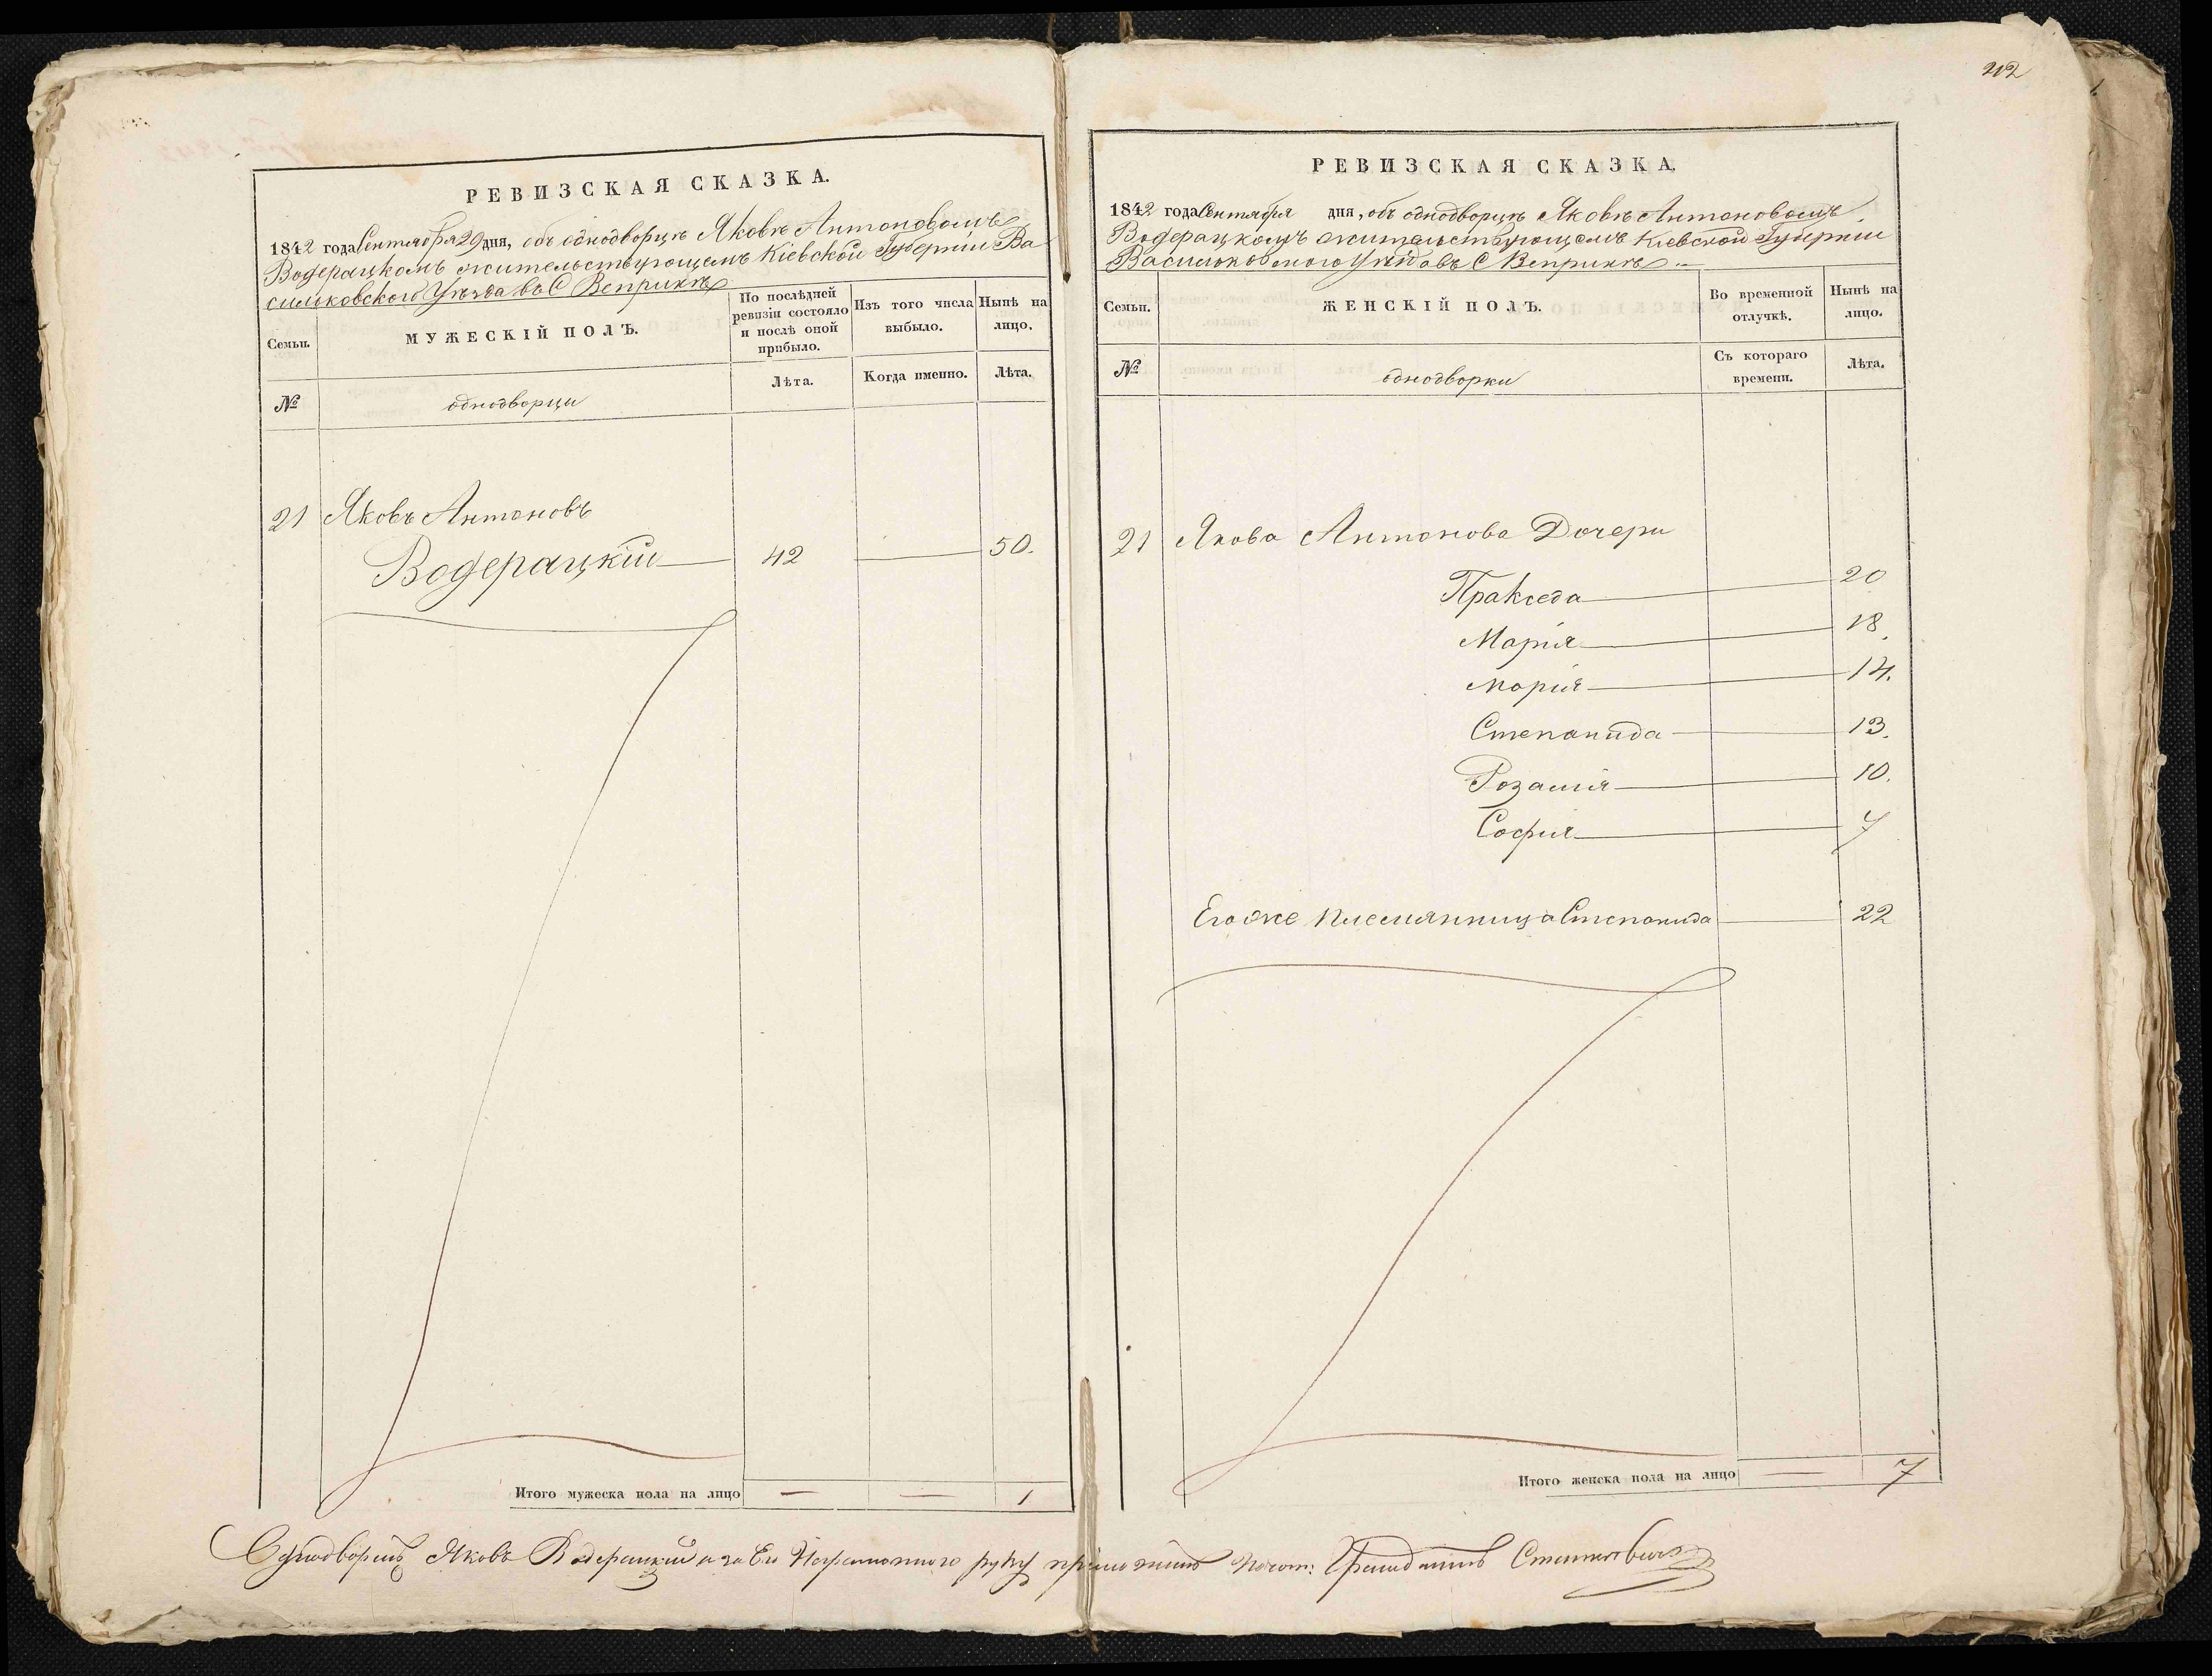 РЕВИЗСКАЯ СКАЗКА.
1842 года Сентября 29 дня, объ однодворцѣ Яковѣ Антоновомъ
Водерацкомъ жительствующемъ Кіевской Губерніи Ва
сильковского Уѣзда въ С Веприкѣ
Семьи.
МУЖЕСКІЙ ПОЛЪ.
По послѣдней ревизіи состояло и послѣ оной прибыло.
Изъ того числа выбыло.
Нынѣ на лицо.
№
однодворци
Лѣта.
Когда именно.
Лѣта.
21 Яковъ Антоновъ
Водерацкій 42 50.
Итого мужеска пола на лицо — — 1
212
РЕВИЗСКАЯ СКАЗКА.
1842 года Сентября дня, объ однодворцѣ Яковѣ Антоновомъ
Водерацкомъ жительствующемъ Кіевской Губерніи
Васильковского Уѣзда въ С Веприкѣ
Семьи.
ЖЕНСКІЙ ПОЛЪ.
Во временной отлучкѣ.
Нынѣ на лицо.
№
однодворки
Съ котораго времени.
Лѣта.
21 Якова Антонова Дочери
Пракседа 20
Марія 18.
Марія 14.
Степанида 13.
Розалія 10.
Софія 7
Его же племянница Степанида 22
Итого женска пола на лицо — 7
Однодворецъ Яковъ Водерацкий а за Его Неграмотного руку приложилъ Станкевичъ